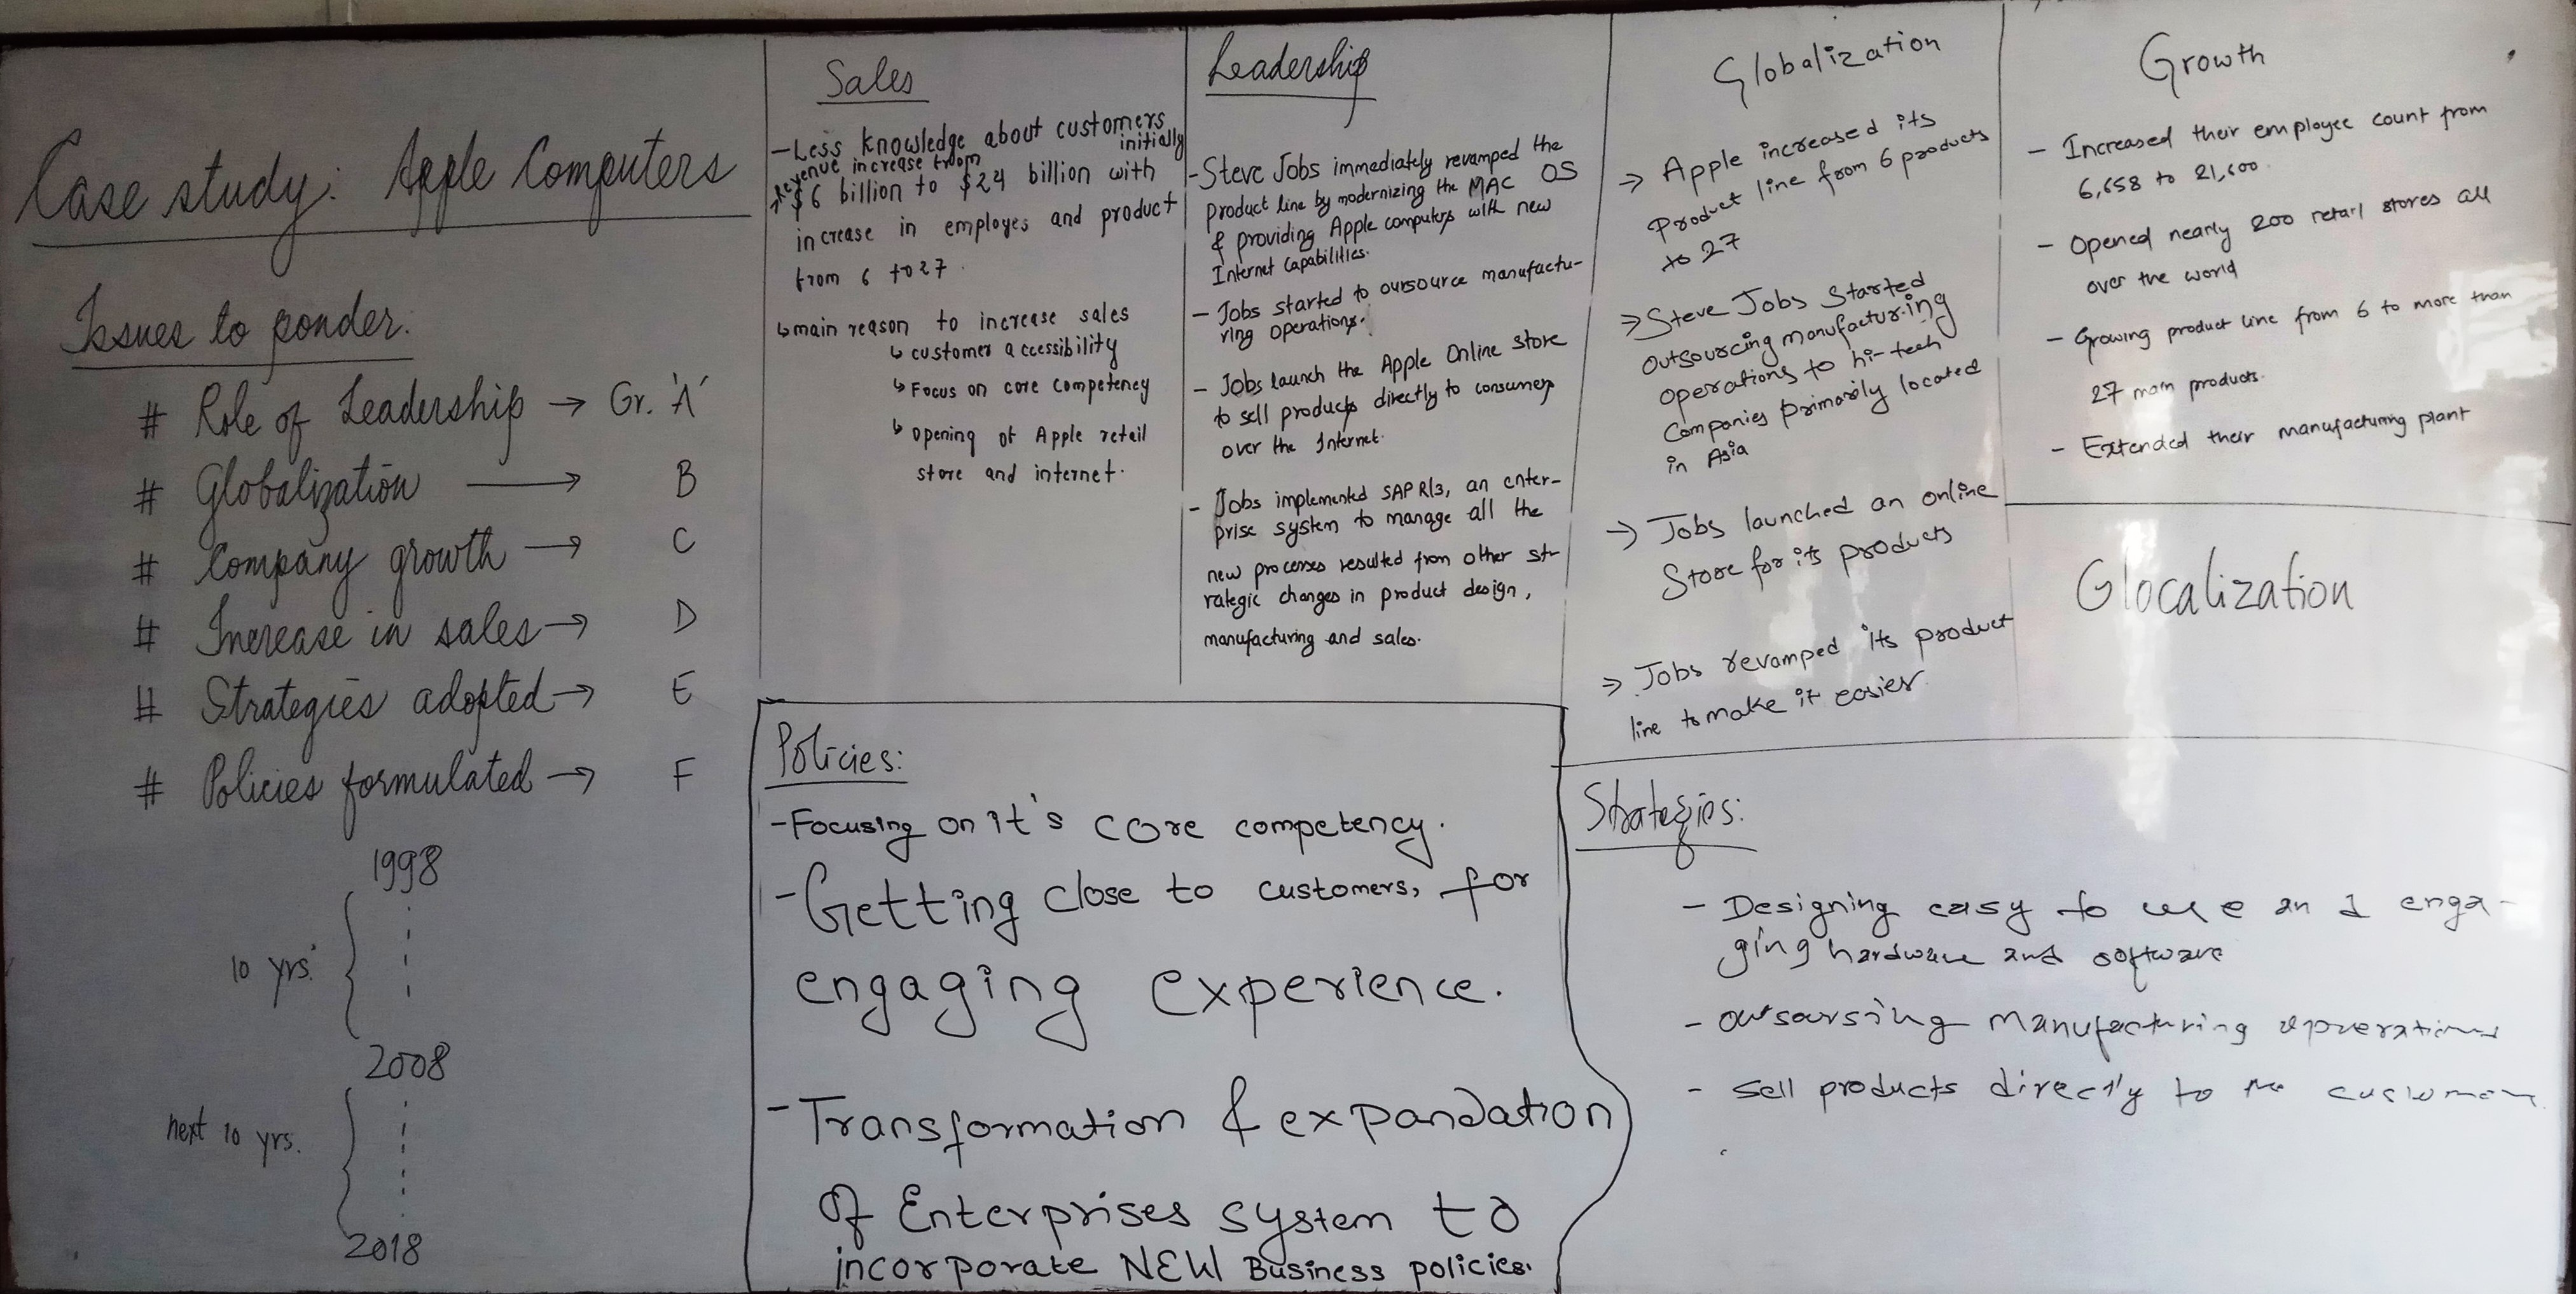 Case study: Apple Computers
Issues to ponder:
# Role of Leadership → Gr. 'A'
# Globalization → B
# Company growth → C
# Increase in sales → D
# Strategies adopted → E
# Policies formulated → F
1998
10 yrs.
2008
next 10 yrs.
2018
Sales
- Less knowledge about customers
initially
→ Revenue increase from
$6 billion to $24 billion with
increase in employes and product
from 6 to 27.
↳ main reason to increase sales
↳ customer accessibility
↳ Focus on core competency
↳ opening of Apple retail
store and internet.
Leadership
- Steve Jobs immediately revamped the
product line by modernizing the MAC OS
& providing Apple computers with new
Internet Capabilities.
- Jobs started to oursource manufactu-
ring operations.
- Jobs launch the Apple Online store
to sell products directly to consumers
over the Internet.
- Jobs implemented SAP R/3, an enter-
prise system to manage all the
new processes resulted from other st-
rategic changes in product design,
manufacturing and sales.
Globalization
→ Apple increased its
product line from 6 products
to 27
→ Steve Jobs Started
outsourcing manufacturing
operations to hi-tech
companies primarily located
in Asia
→ Jobs launched an online
Store for its products
→ Jobs revamped its product
line to make it easier.
Growth
- Increased their employee count from
6,658 to 21,600.
- Opened nearly 200 retail stores all
over the world
- Growing product line from 6 to more than
27 main products.
- Extended their manufacturing plant
Glocalization
Policies:
- Focusing on it's core competency.
- Getting close to customers, for
engaging experience.
- Transformation & expandation
Of Enterprises system to
incorporate NEW Business policies.
Strategies:
- Designing easy to use and enga-
ging hardware and software
- outsarsing manufacturing operations
- sell products directly to the customers.